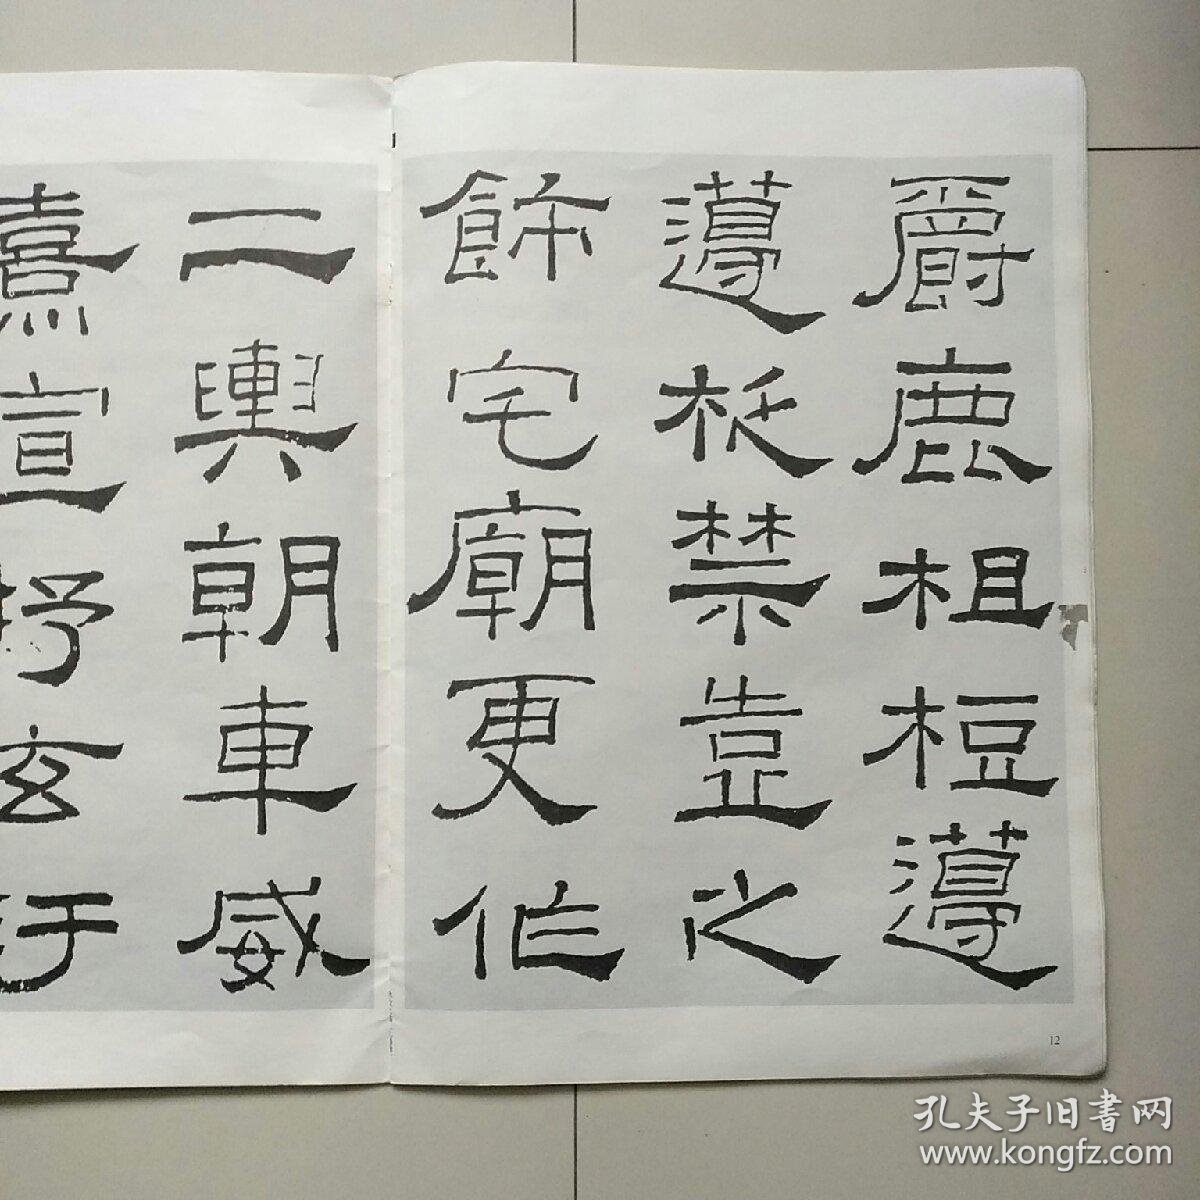 爵鹿柤梪籩
籩柉禁壼之
餝宅廟更作
二輿朝車威
熹宣抒玄汙
12
孔夫子旧書网
www.kongfz.com